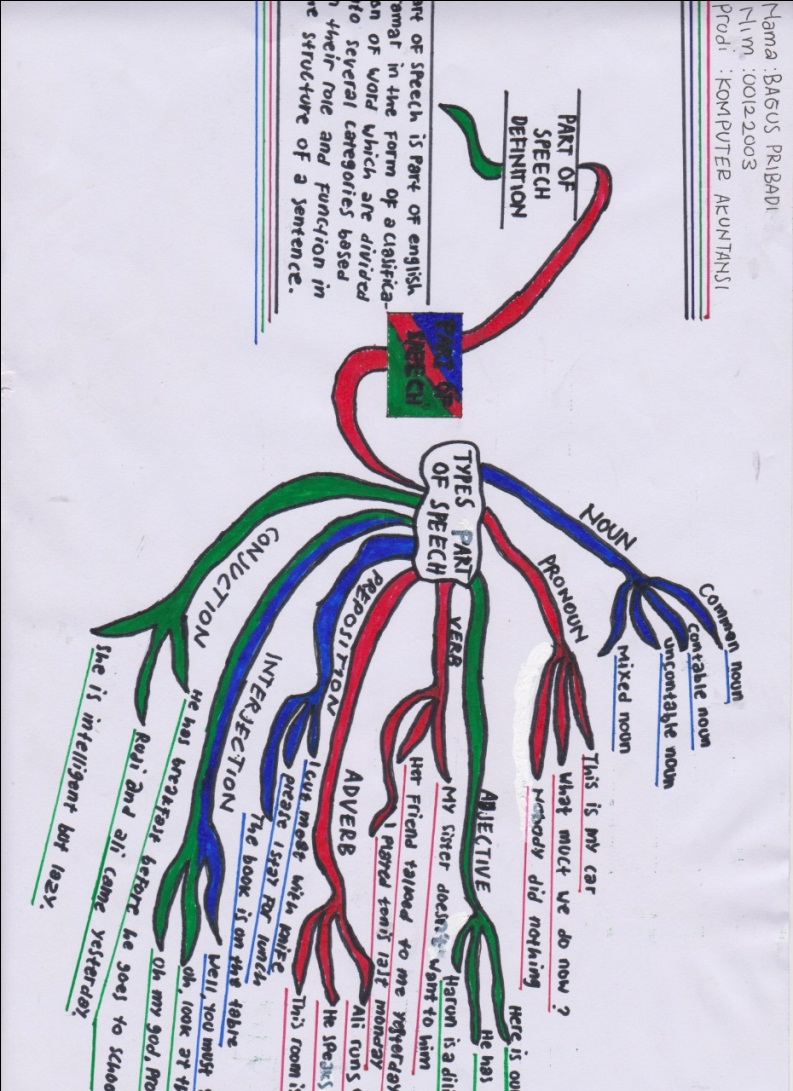 Nama : BAGUS PRIBADI
Nim : 00122003
Prodi : KOMPUTER AKUNTANSI
PART OF
SPEECH
DEFINITION
art of speech is part of english
amar in the form of a clasifica-
on of word which are divided
to several categories based
their role and function in
e structure of a sentence.
PART OF
SPEECH
TYPES PART
OF SPEECH
NOUN
Common noun
Contable noun
uncontable noun
Mixed noun
PRONOUN
This is my car
What muct we do now ?
Nobody did nothing
ADJECTIVE
Here is
He has
Harun is a
VERB
My sister doesn't want to him
Her friend talked to me yesterday
I played tenis last monday
ADVERB
Ali runs
He speaks
This room
PREPOSITION
I cut meat with knife
I stay for lunch
The book is on the table
INTERJECTION
Well, you must
Oh, look at
Oh my god,
CONJUCTION
He has breakfast before he goes to
Rudi and ali came yesterday.
She is intelligent but lazy.